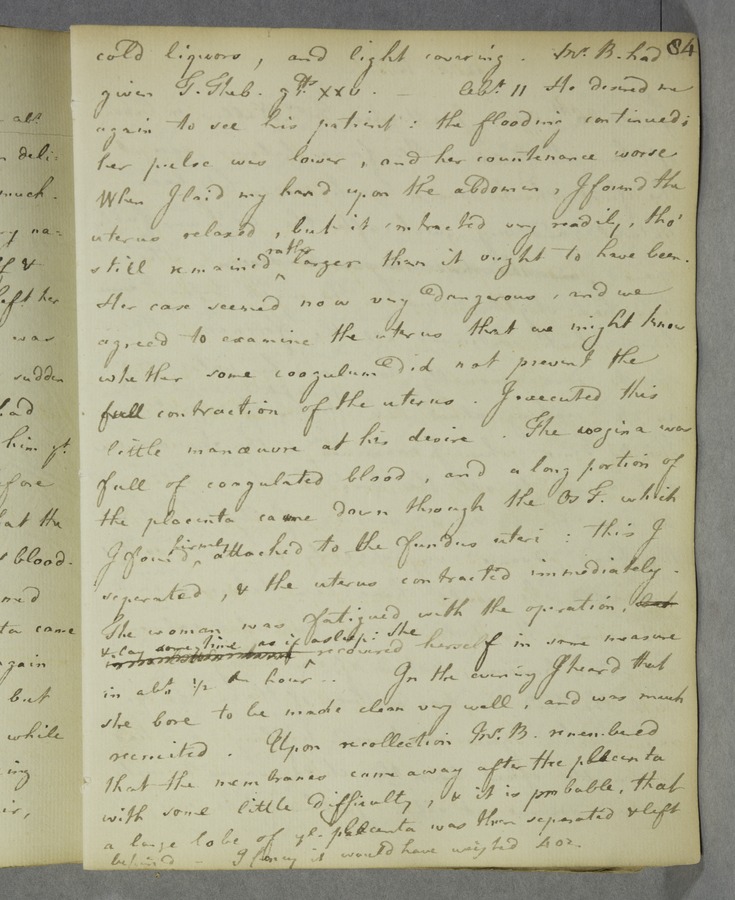 84
cold liquors, and light covering. Mr. B. had
given T. Theb. gtts xxv. — at abt. 11 He desired me
again to see his patient: the flooding continued;
her pulse was lower, and her countenance worse
When I laid my hand upon the abdomen, I found the
uterus relaxed, but it contracted very readily, tho'
still remained rather larger than it ought to have been.
Her case seemed now very dangerous, and we
agreed to examine the uterus that we might know
whether some coagulum did not prevent the
full contraction of the uterus. I executed this
little manœuvre at his desire. The vagina was
full of coagulated blood, and a long portion of
the placenta came down through the Os T. which
I found firmly attached to the fundus uteri: this I
separated, & the uterus contracted immediately.
The woman was fatigued with the operation, but
& lay some time, as if asleep: she recovered herself in some measure
in abt. 1/2 an hour. In the evening I heard that
she bore to be made clean very well, and was much
recruited. Upon recollection Mr. B. remembered
that the membranes came away after the placenta
with some little difficulty, & it is probable, that
a large lobe of ye. placenta was then separated & left
behind — I fancy it would have weighed 4 oz.
abt.
deli:
much.
ry na:
&
left her
was
sudden
had
him yt.
fore
at the
blood.
ta came
again
but
while
ing